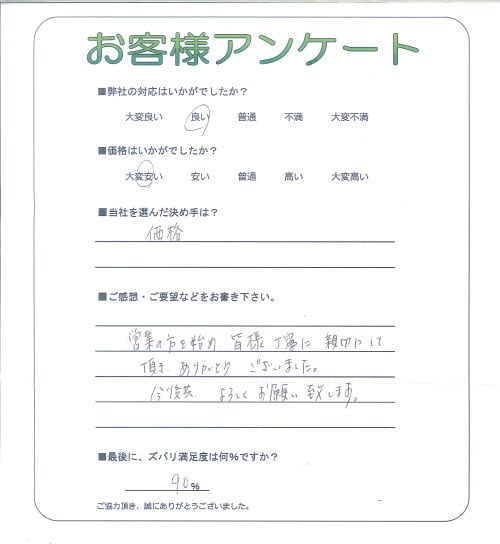 お客様アンケート
■弊社の対応はいかがでしたか？
大変良い 良い 普通 不満 大変不満
■価格はいかがでしたか？
大変安い 安い 普通 高い 大変高い
■当社を選んだ決め手は？
価格
■ご感想・ご要望などをお書き下さい。
営業の方を始め 皆様 丁寧に 親切にして
頂き ありがとう ございました。
今後共 よろしく お願い 致します。
■最後に、ズバリ満足度は何％ですか？
90％
ご協力頂き、誠にありがとうございました。